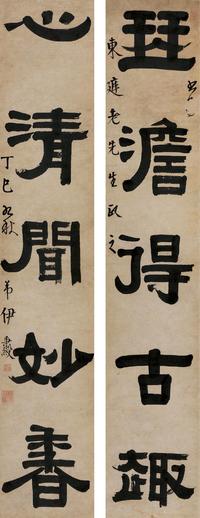 琴澹得古趣
老先生政之
心清聞妙香
丁巳 秋 弟伊秉綬